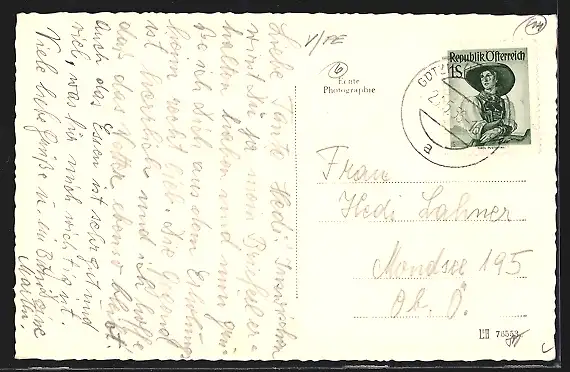 Liebe Tante Hedi! Inzwischen
wirst Du ja mein Brieferl er-
halten haben und nun grü-
ße ich Dich aus dem Erholungs-
heim recht lieb. Die Gegend
ist herrlich und ich hoffe
das das Wetter ebenso bleibt.
Auch das Essen ist sehr gut und
viel, was für mich wichtig ist.
Viele liebe Grüße u. ein Busserl Deine
V/FE
6
Echte
Photographie
Republik Österreich
1S
GÖTZ
a
Frau
Hedi Lahner
Mondsee 195
Ob. Ö.
76553